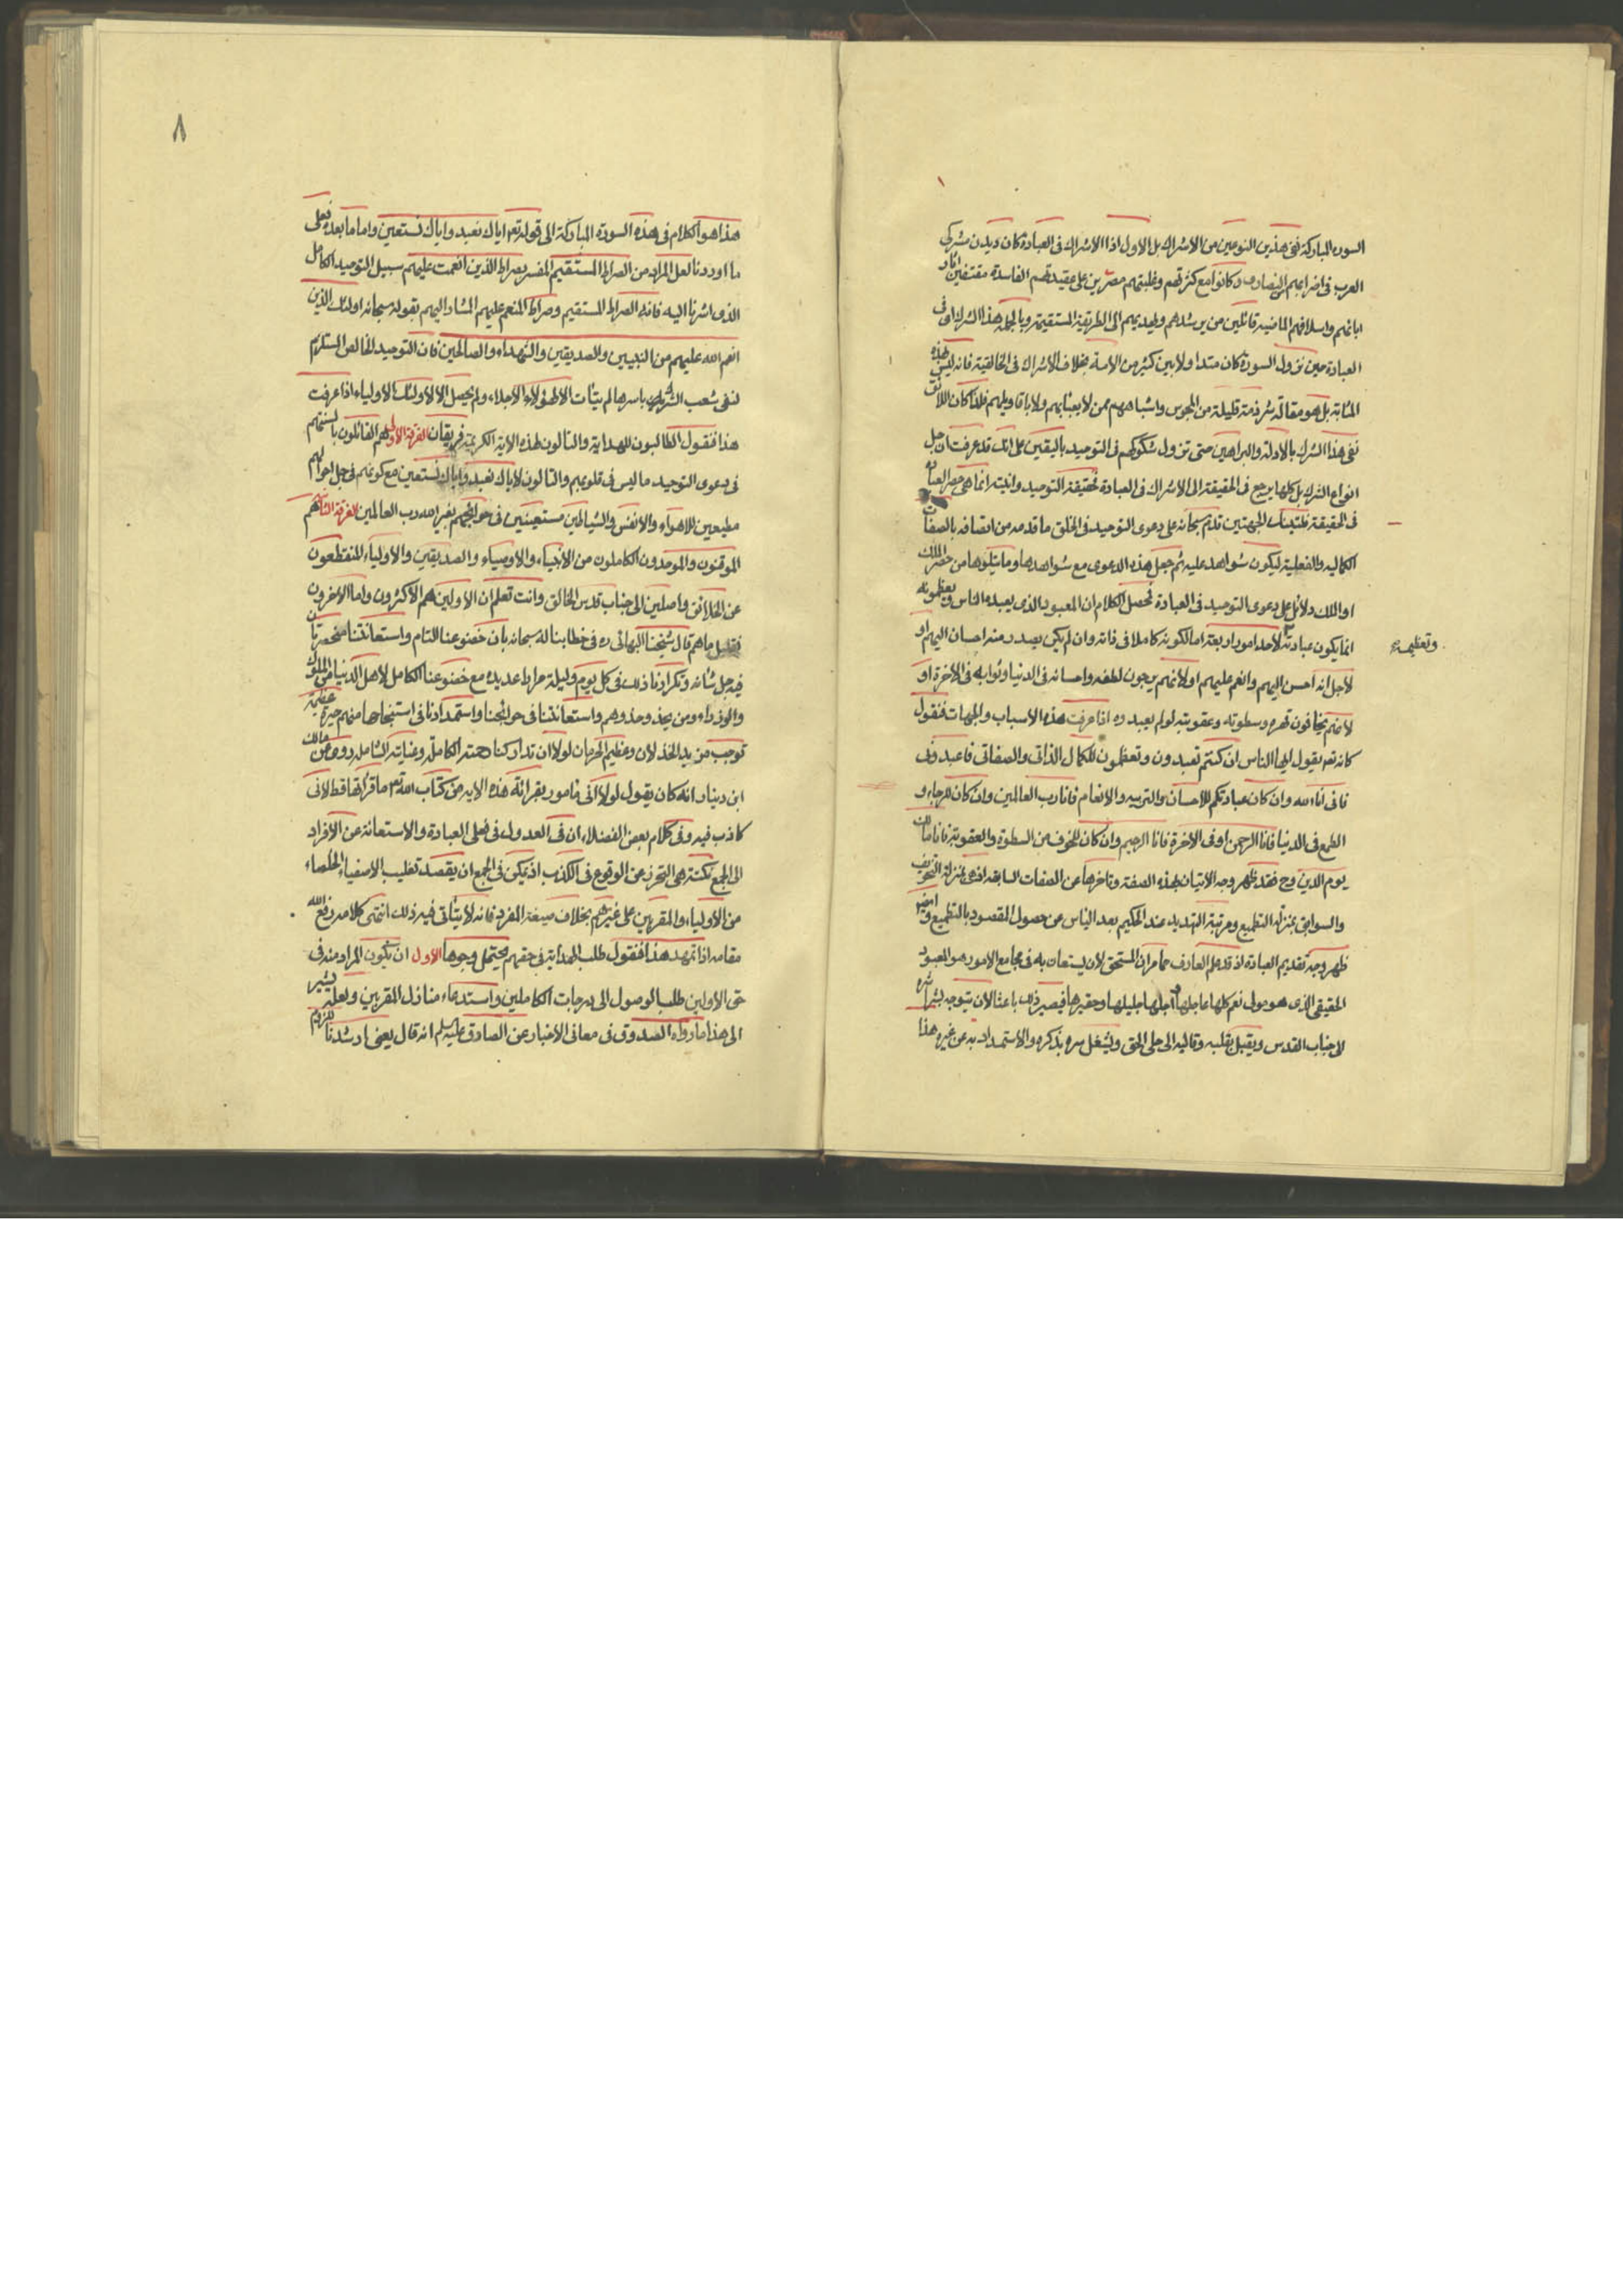 السورة المباركة نفى هذين النوعين من الاشراك بل الاول اذا الاشراك فى العبادة كان ديدن مشركى
العرب فى اضرابهم النصارى وكانوا مع كثرتهم وغلبتهم مصرين على عقيدتهم الفاسدة مقتفين اثار
ابائهم واسلافهم الماضية قائلين من يرشدهم ويهديهم الى الطريقة المستقيمة وبالجملة هذا الشرك اى فى
العبادة حين نزول السورة كان متداولا بين كثير من الامة بخلاف الاشراك فى الخالقية فانه ليس بهذه
المثابة بل هو مقالة شرذمة قليلة من المجوس واشباههم ممن لا يعبأ بهم ولا باقاويلهم فلذا كان اللائق
نفى هذا الشرك بالادلة والبراهين حتى تزول شكوكهم فى التوحيد باليقين على انك قد عرفت ان جل
انواع الشرك بل كلها يرجع فى الحقيقة الى الاشراك فى العبادة فحقيقة التوحيد وانيته انما هى حصر العبادة
فى الحقيقة فلتينك الجهتين قدم سبحانه على دعوى التوحيد فى الخلق ما قدمه من اتصافه بالصفات
الكمالية والفعلية ليكون شواهد عليه ثم جعل هذه الدعوى مع شواهدها وما يتلوها من حصر الملك
او الملك دلائل على دعوى التوحيد فى العبادة فمحصل الكلام ان المعبود الذى يعبده الناس ويعظمونه
انما يكون عبادته لاحد امور اربعة اما لكونه كاملا فى ذاته وان لم يكن يصدر منه احسان اليهم او
وتعظيمه
لاجل انه احسن اليهم وانعم عليهم او لانهم يرجون لطفه واحسانه فى الدنيا وثوابه فى الاخرة او
لانهم يخافون قهره وسطوته وعقوبته لو لم يعبدوه اذا عرفت هذه الاسباب والجهات فنقول
كانه تعم يقول ايها الناس ان كنتم تعبدون وتعظمون للكمال الذاتى والصفاتى فاعبدونى
فانى انا الله وان كان عبادتكم للاحسان والتربية والانعام فانا رب العالمين وان كان للرجاء و
الطمع فى الدنيا فانا الرحمن او فى الاخرة فانا الرحيم وان كان للخوف من السطوة والعقوبة فانا مالك
يوم الدين وح فقد ظهر وجه الاتيان بهذه الصفة وتاخرها عن الصفات السابقة اذ هى بمنزلة التخويف
والسوابق بمنزلة التطميع ومرتبة التهديد عند الحكيم بعد الياس عن حصول المقصود بالتطميع وايضا
ظهر وجه تقديم العبادة اذ قد علم العارف مما مر ان المستحق لان يستعان به فى مجامع الامور هو المعبود
الحقيقى الذى هو مولى نعم كلها عاجلها واجلها جليلها وحقيرها فيصير ذلك باعثا لان يتوجه بشراشره
الى جناب القدس ويقبل بقلبه وقالبه الى جلى الحق ويشغل سره بذكره والاستمداد به عن غيره هذا
٨
هذا هو الكلام فى هذه السورة المباركة الى قوله تعم اياك نعبد واياك نستعين واما ما بعده فعلى
ما اوردنا لعل المراد من الصراط المستقيم المفسر بصراط الذين انعمت عليهم سبيل التوحيد الكامل
الذى اشرنا اليه فانه الصراط المستقيم وصراط المنعم عليهم المشار اليهم بقوله سبحانه اولئك الذين
انعم الله عليهم من النبيين والصديقين والشهداء والصالحين فان التوحيد الخالص المستلزم
لنفى شعب الشرك باسرها لم يتأت الا لهؤلاء الاجلاء ولم يحصل الا لاولئك الاولياء اذا عرفت
هذا فنقول الطالبون للهداية والتالون لهذه الاية الكريمة فريقان الفرقة الاولى هم القائلون بالسنتهم
فى دعوى التوحيد ما ليس فى قلوبهم والتالون لاياك نعبد واياك نستعين مع كونهم فى جل احوالهم
مطيعين للاهواء والانفس والشياطين مستعينين فى حوائجهم بغير الله رب العالمين الفرقة الثانية هم
الموقنون والموحدون الكاملون من الانبياء والاوصياء والصديقين والاولياء المنقطعون
عن الخلائق واصلين الى جناب قدس الخالق وانت تعلم ان الاولين هم الاكثرون واما الاخرون
فقليل ما هم قال شيخنا البهائى ره فى خطابنا له سبحانه بان خضوعنا التام واستعانتنا منحصرتان
فيه جل شانه وتكرارنا ذلك فى كل يوم وليلة مرارا عديدة مع خضوعنا الكامل لاهل الدنيا من الملوك
والوزراء ومن يحذو حذوهم واستعانتنا فى حوائجنا واستمدادنا فى استنجاحها منهم جرءة عظيمة
توجب مزيد الخذلان وعظيم الحرمان لولا ان تداركنا رحمته الكاملة وعنايته الشاملة روى عن مالك
ابن دينار انه كان يقول لولا انى مامور بقرائة هذه الاية من كتاب الله تعم ما قرأتها قط لانى
كاذب فيه وفى كلام بعض الفضلاء ان فى العدول فى فعلى العبادة والاستعانة عن الافراد
الى الجمع نكتة هى التحرز عن الوقوع فى الكذب اذ يمكن فى الجمع ان يقصد تغليب الاصفياء الخلصاء
من الاولياء والمقربين على غيرهم بخلاف صيغة المفرد فانه لا يتأتى فيه ذلك انتهى كلامه رفع الله
مقامه اذا تمهد هذا فنقول طلب الهداية فى حقهم يحتمل وجوها الاول ان يكون المراد منه فى
حق الاولين طلب الوصول الى درجات الكاملين واستدعاء منازل المقربين ولعله يشير
الى هذا ما رواه الصدوق فى معانى الاخبار عن الصادق عليه السلم انه قال يعنى ارشدنا للزوم